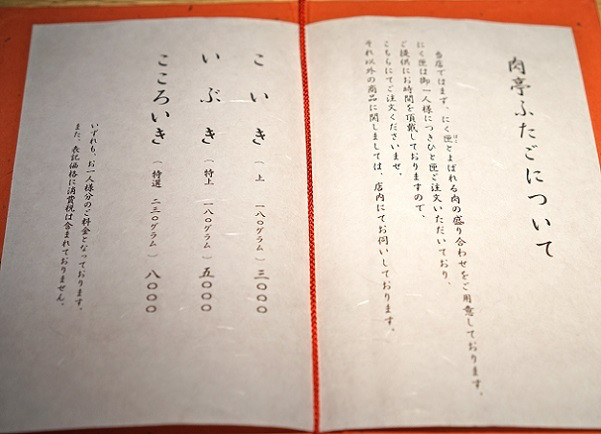 肉亭ふたごについて
当店ではまず、にく匣とよばれる肉の盛り合わせをご用意しております。
にく匣は御一人様につきひと匣ご注文いただいており、
ご提供にお時間を頂戴しておりますので、
こちらにてご注文くださいませ。
それ以外の商品に関しましては、店内にてお伺いしております。
こいき（上 一八〇グラム）三〇〇〇
いぶき（特上 一八〇グラム）五〇〇〇
こころいき（特選 二三〇グラム）八〇〇〇
いずれも、お一人様分のご料金となっております。
また、表記価格に消費税は含まれておりません。